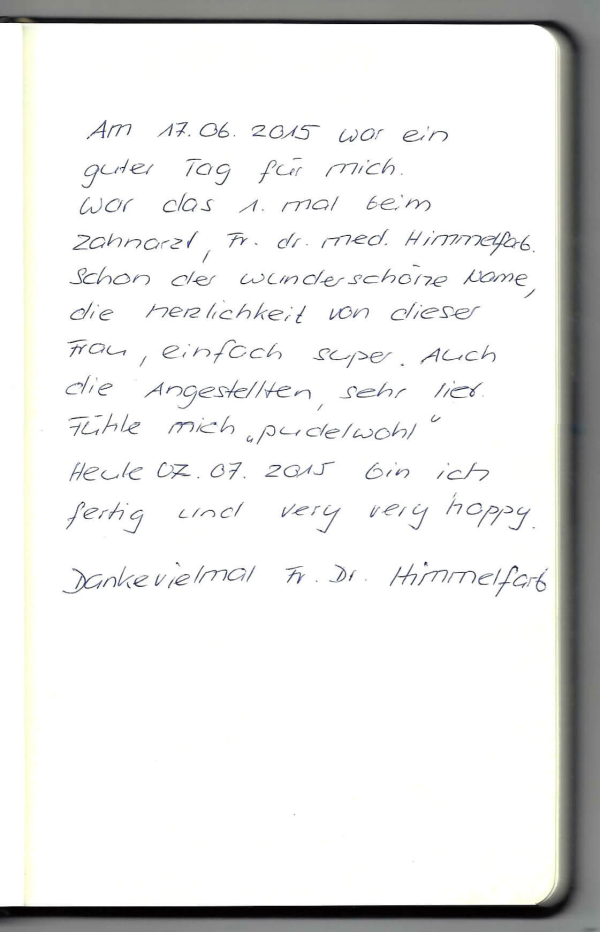 Am 17.06. 2015 war ein
guter Tag für mich.
War das 1. mal beim
Zahnarzt, Fr. dr. med. Himmelfarb.
Schon der wunderschöne Name,
die herzlichkeit von dieser
Frau, einfach super. Auch
die Angestellten, sehr lieb.
Fühle mich „pudelwohl“
Heute 07.07. 2015 bin ich
fertig und very very happy.
Dankevielmal Fr. Dr. Himmelfarb